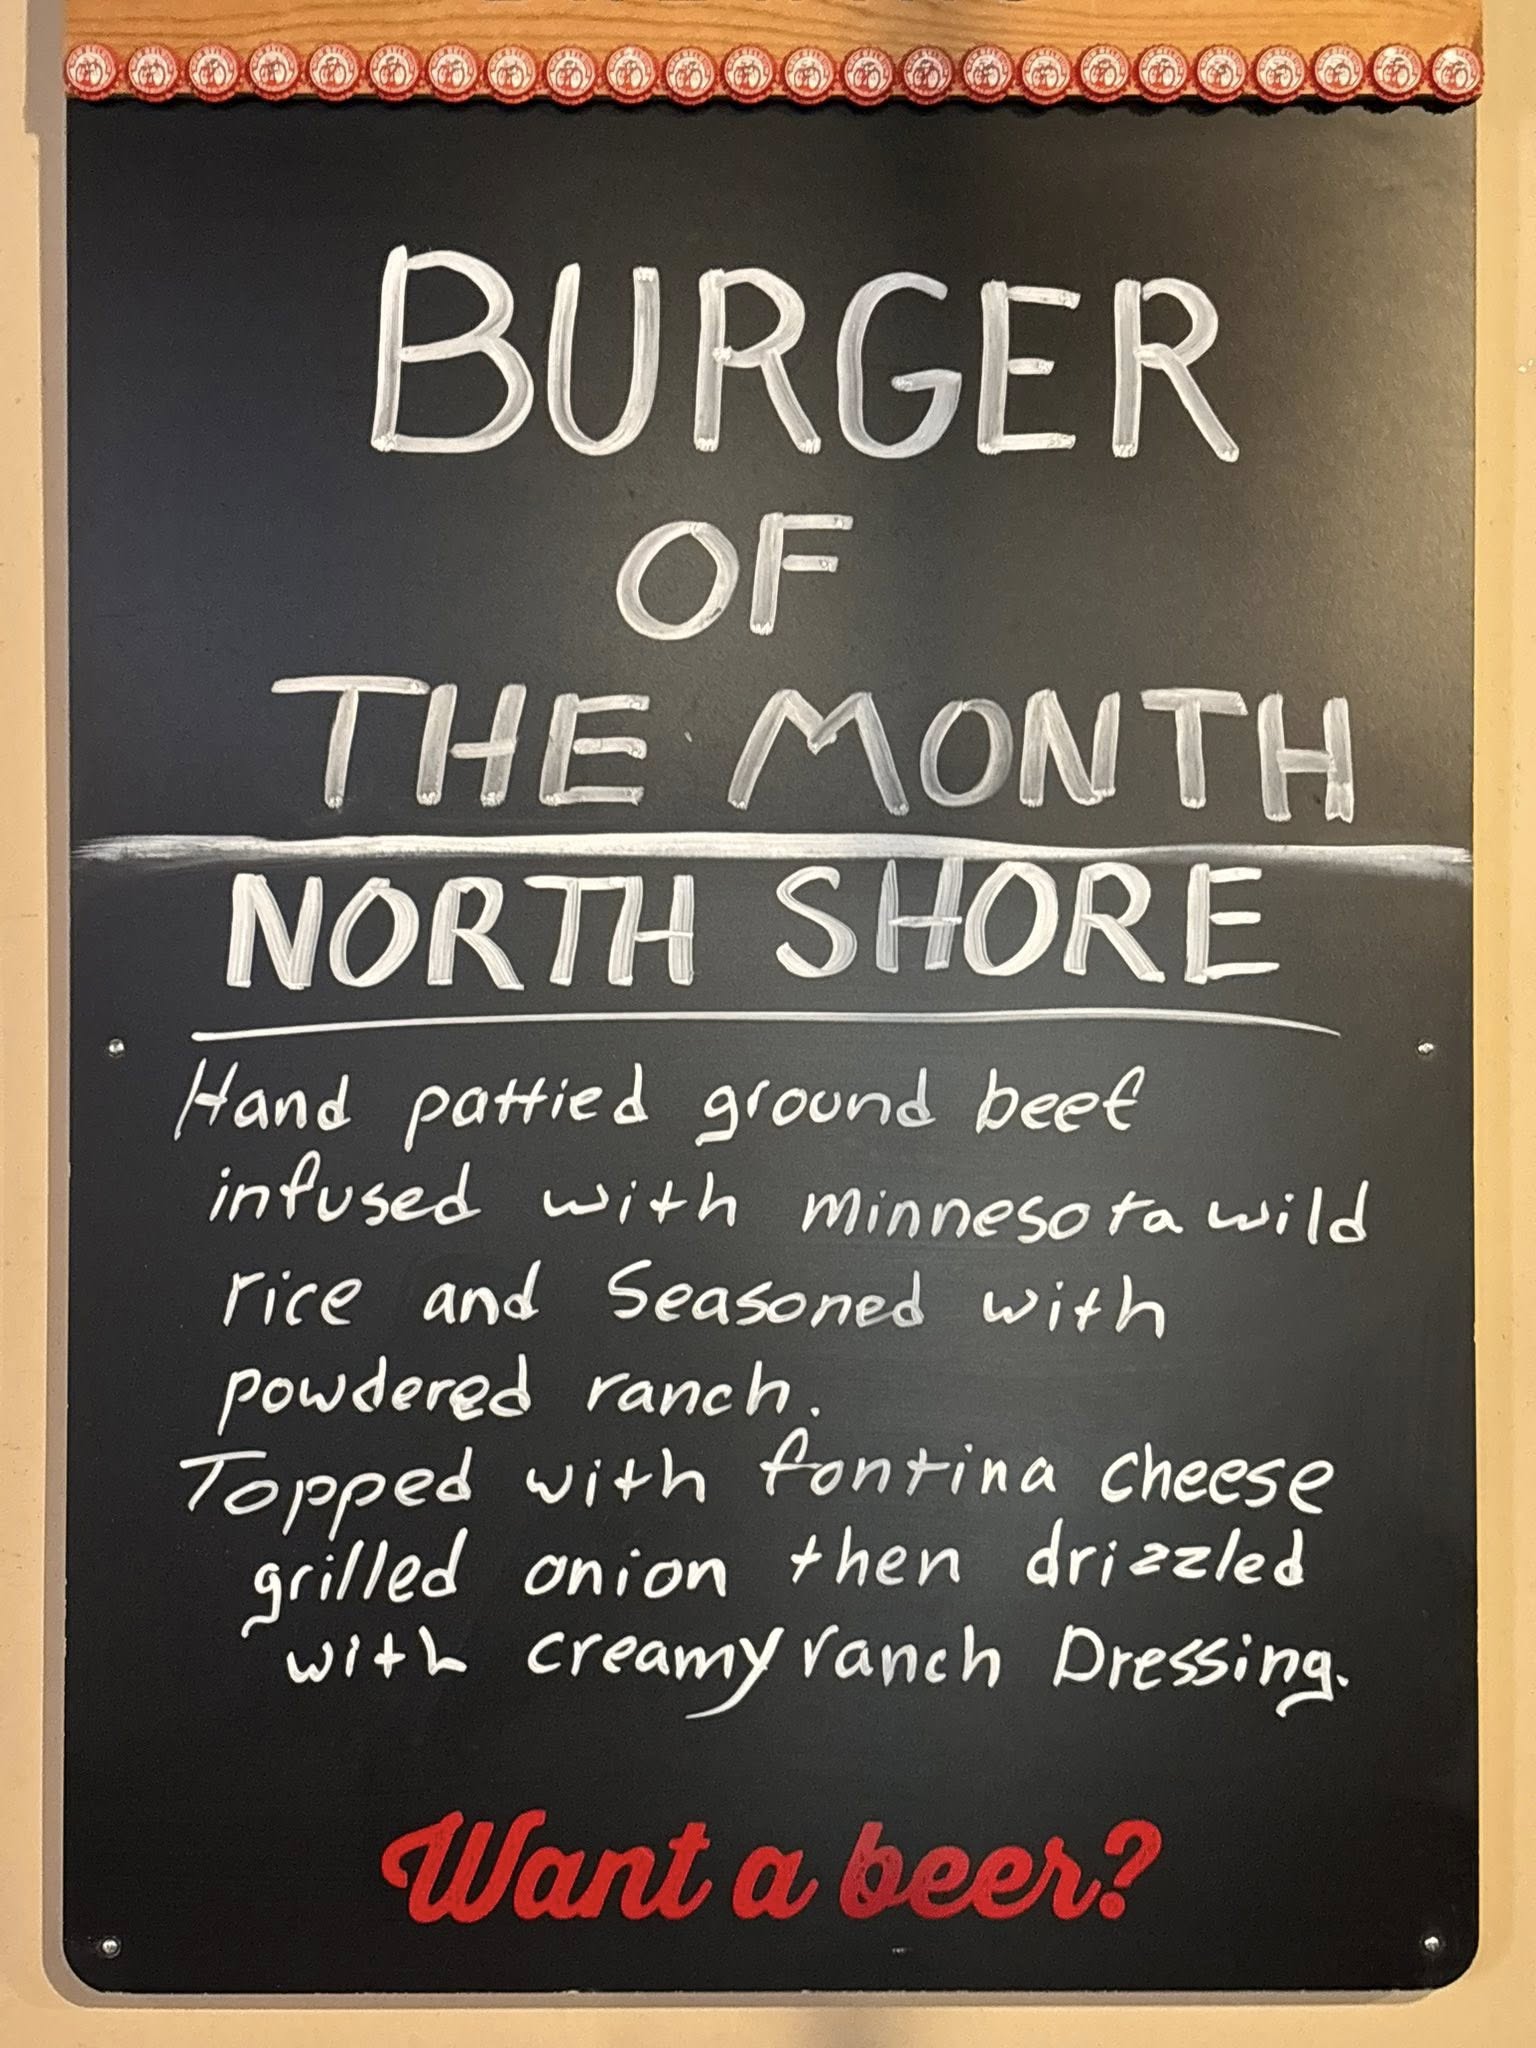 BURGER
OF
THE MONTH
NORTH SHORE
Hand pattied ground beef
infused with minnesota wild
rice and Seasoned with
powdered ranch.
Topped with fontina cheese
grilled onion then drizzled
with creamy ranch Dressing.
Want a beer?